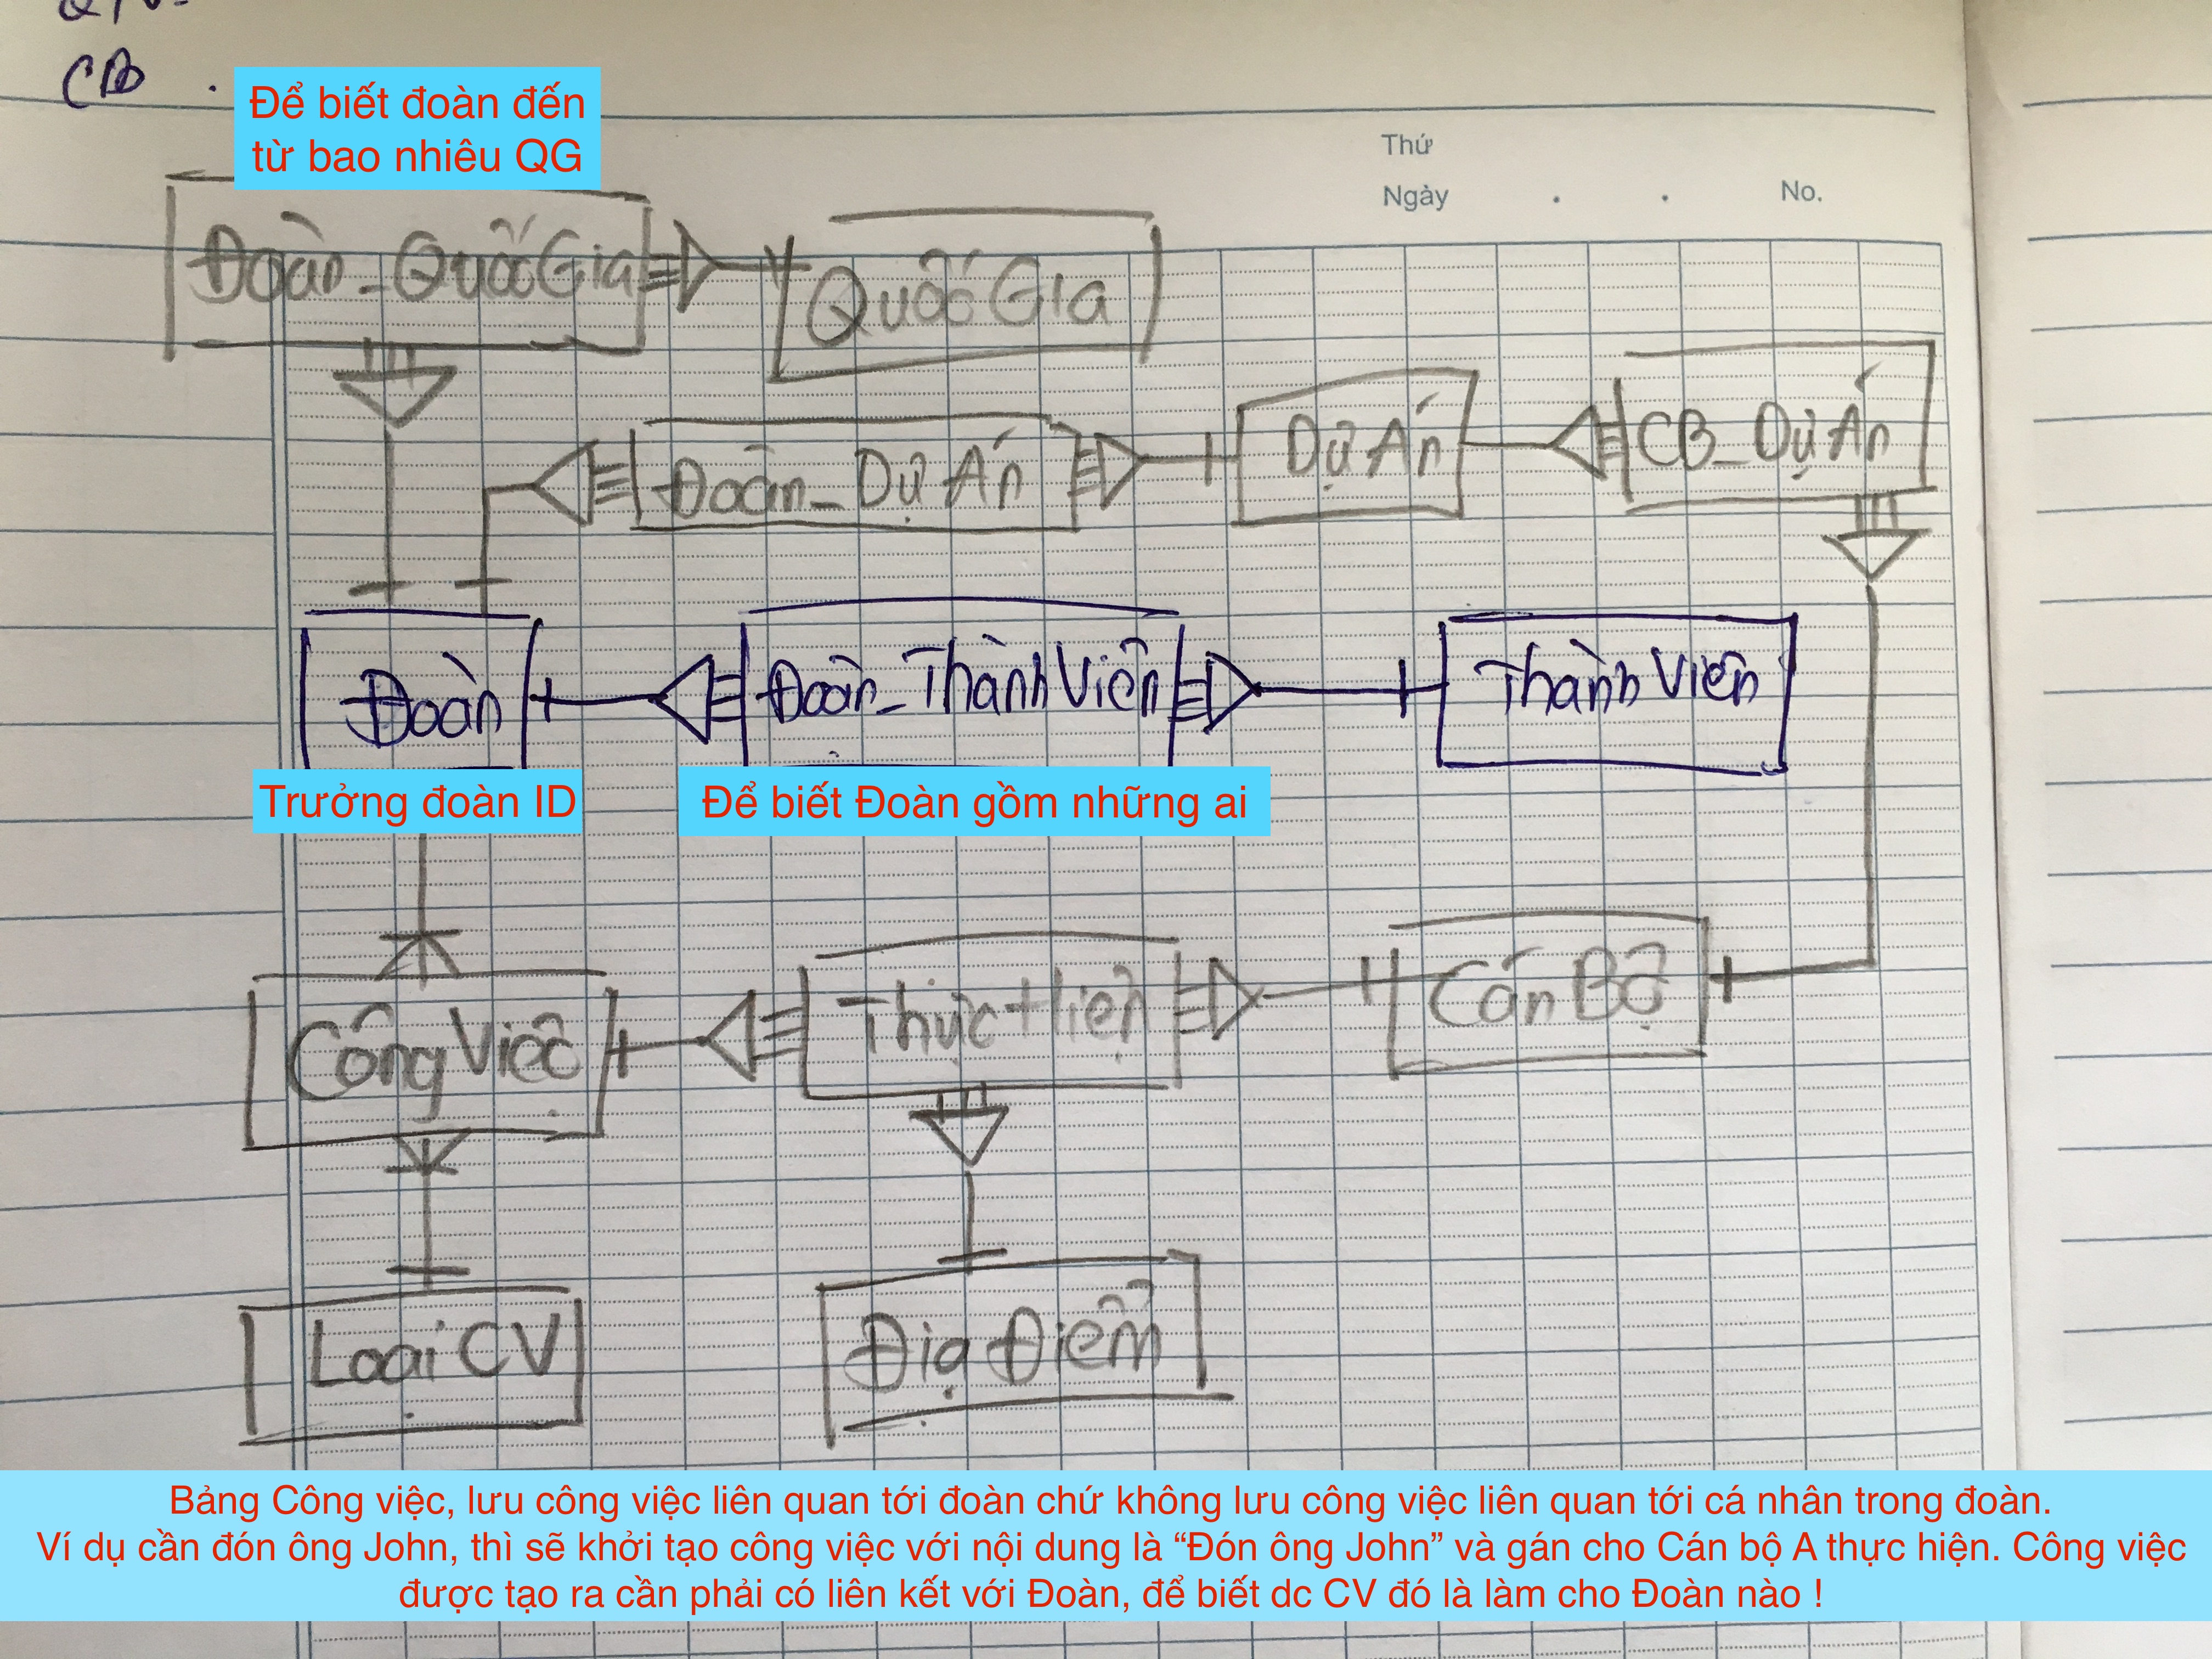 CB .
Để biết đoàn đến
từ bao nhiêu QG
Thứ
Ngày . . No.
Đoàn_QuốcGia
QuốcGia
Đoàn_Dự Án
Dự Án
CB_Dự Án
Đoàn
Đoàn_Thành Viên
Thành Viên
Trưởng đoàn ID
Để biết Đoàn gồm những ai
Công Việc
Thực Hiện
Cán Bộ
Loại CV
Địa Điểm
Bảng Công việc, lưu công việc liên quan tới đoàn chứ không lưu công việc liên quan tới cá nhân trong đoàn.
Ví dụ cần đón ông John, thì sẽ khởi tạo công việc với nội dung là “Đón ông John” và gán cho Cán bộ A thực hiện. Công việc
được tạo ra cần phải có liên kết với Đoàn, để biết dc CV đó là làm cho Đoàn nào !